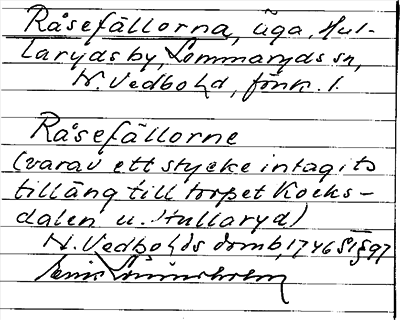 Råsefällorna, äga, Hul-
laryds by, Lommaryds sn,
N. Vedbohd, Jönk. l.
Råsefällorne
(varav ett stycke intagits
till äng till torpet Kocks-
dalen u. Hullaryd)
N. Vedbohds domb, 1746 St § 97